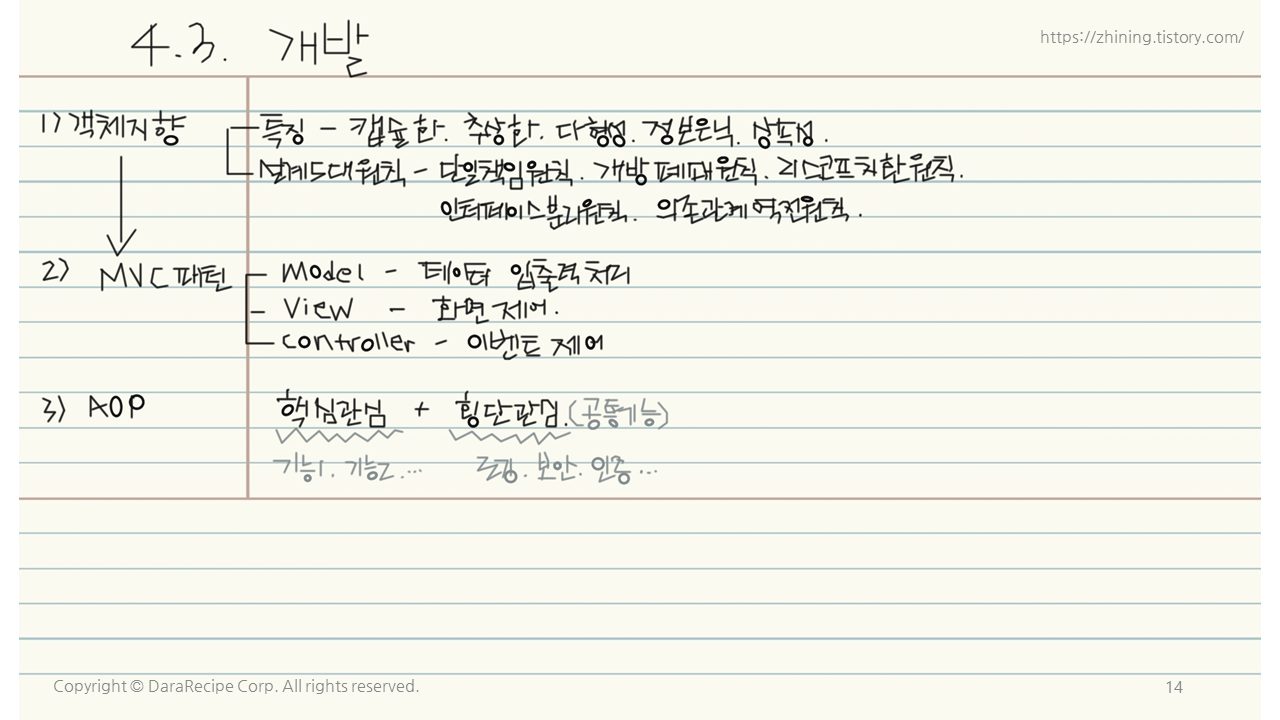 4.3. 개발
https://zhining.tistory.com/
1) 객체지향
특징 - 캡슐화. 추상화. 다형성. 정보은닉. 상속성.
설계5대원칙 - 단일책임원칙. 개방폐쇄원칙. 리스코프치환원칙.
인터페이스분리원칙. 의존관계역전원칙.
2) MVC패턴
Model - 데이터 입출력처리
View - 화면제어.
controller - 이벤트제어
3) AOP
핵심관심 + 횡단관심.(공통기능)
기능1. 기능2. ... 로깅. 보안. 인증 ...
Copyright © DaraRecipe Corp. All rights reserved.
14